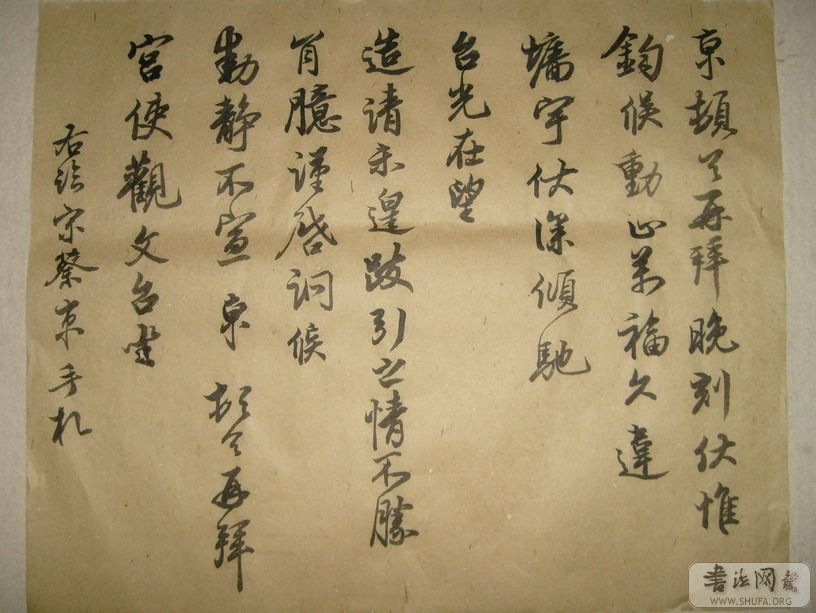 京頓首再拜晚刻伏惟
鈞候動止萬福久違
墻宇伏深傾馳
台光在望
造請未遑跂引之情不勝
肯臆謹啓詗候
動靜不宣京頓首再拜
宮使觀文台坐
右臨宋蔡京手札
書法网
WWW.SHUFA.ORG